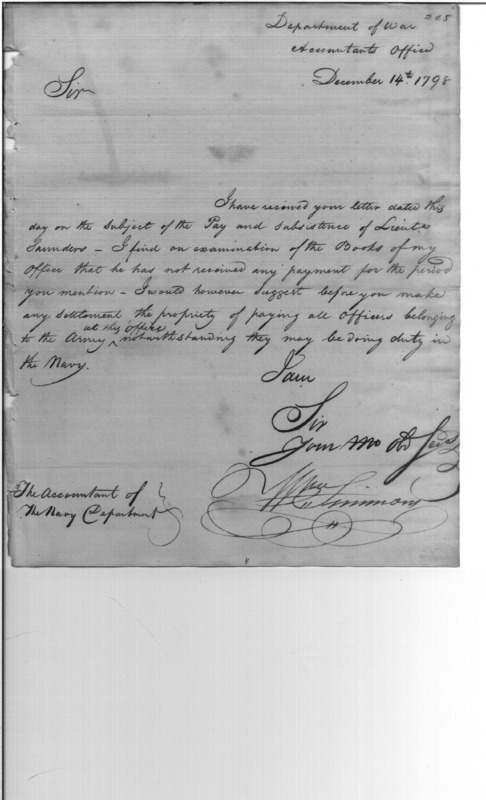 225
Department of War
Accountants Office
December 14th. 1798
Sir
I have received your letter dated this
day on the subject of the Pay and subsistence of Lieut
Saunders – I find on examination of the Books of my
Office that he has not received any payment for the period
you mention – I would however suggest before you make
any settlement the propriety of paying all Officers belonging
at this office
to the Army ^ notwithstanding they may be doing duty in
the Navy.
I am
Sir
Your Mo Obt Servt
Wm Simmons
The Accountant of
The Navy Department